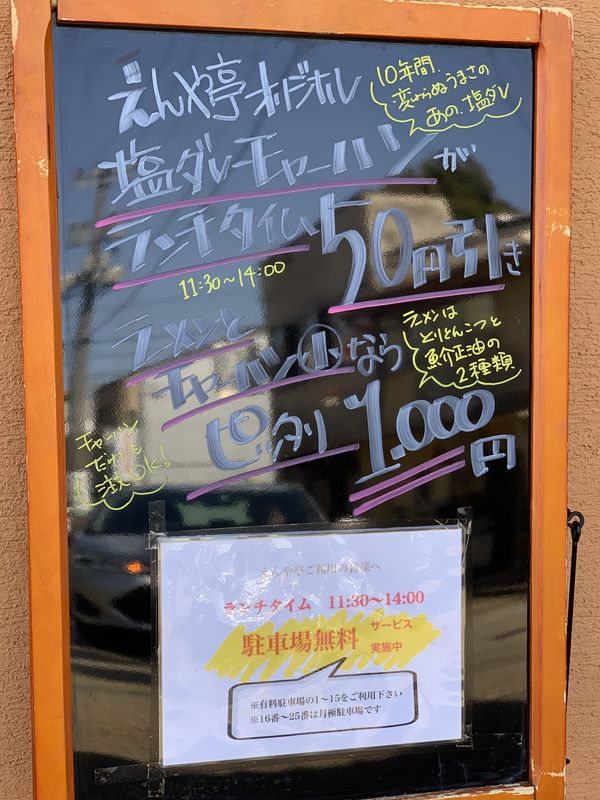 えんや亭オリジナル
10年間
変わらぬうまさの
あの塩ダレ
塩ダレチャーハンが
ランチタイム 50円引き
11:30〜14:00
ラーメンと
チャーハン小なら
ピッタリ 1.000円
ラーメンは
とりとんこつと
魚介正油の
2種類
チャーハン
だけでも
注文OK!
えんや亭ご利用の皆様へ
ランチタイム 11:30〜14:00
駐車場無料 サービス
実施中
※有料駐車場の1〜15をご利用下さい
※16番〜25番は月極駐車場です